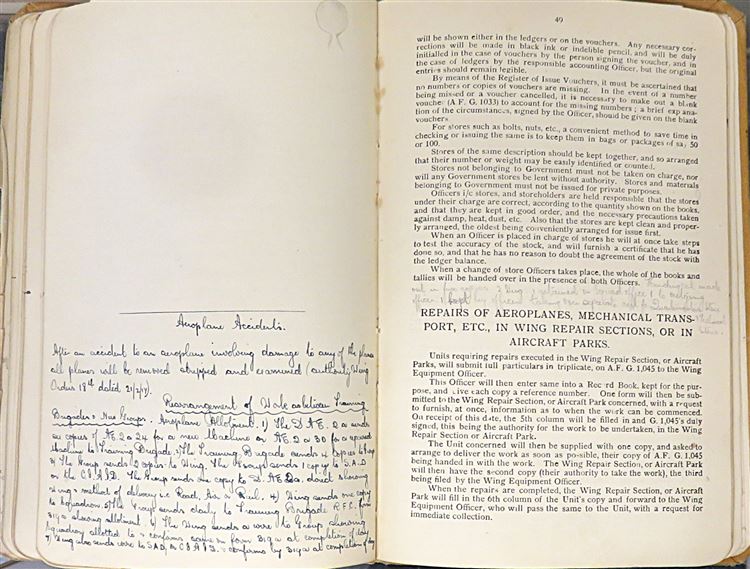 Aeroplane Accidents.
After an accident to an aeroplane involving damage to any of the planes
all planes will be removed stripped and examined (authority Wing
Orders 18th dated 21/2/17).
Rearrangement of Work between Training
Brigades & New Groups. Aeroplane Allotment. 1) The D.A.E. 2a sends
six copies of A.E.2a 24 for a new Machine or A.E.2a 30 for a repaired
Machine to Training Brigade. 2) The Training Brigade sends 4 copies to Group
3) The Group sends 2 copies to Wing. The Group sends 1 copy to S.A.D
or the C.B.A.I.D. The Group sends one copy to D.A.E.2a. direct showing
Wing's method of delivery i.e. Road, Air or Rail. 4) Wing sends one copy
to Squadron. 5) The Group sends daily to Training Brigade R.F.C. form
showing allotment. 6) The Wing sends a wire to Group showing
Squadron allotted to & confirms same on form at completion of day
7) Wing also sends wire to S.A.D. or & confirms by at completion of day
49
will be shown either in the ledgers or on the vouchers. Any necessary cor-
rections will be made in black ink or indelible pencil, and will be duly
initialled in the case of vouchers by the person signing the voucher, and in
the case of ledgers by the responsible accounting Officer, but the original
entries should remain legible.
By means of the Register of Issue Vouchers, it must be ascertained that
no numbers or copies of vouchers are missing. In the event of a number
being missed or a voucher cancelled, it is necessary to make out a blank
voucher (A.F. G. 1033) to account for the missing numbers; a brief expanation
of the circumstances, signed by the Officer, should be given on the blank
vouchers.
For stores such as bolts, nuts, etc., a convenient method to save time in
checking or issuing the same is to keep them in bags or packages of say 50
or 100.
Stores of the same description should be kept together, and so arranged
that their number or weight may be easily identified or counted.
Stores not belonging to Government must not be taken on charge, nor
will any Government stores be lent without authority. Stores and materials
belonging to Government must not be issued for private purposes.
Officers i/c stores, and storeholders are held responsible that the stores
under their charge are correct, according to the quantity shown on the books,
and that they are kept in good order, and the necessary precautions taken
against damp, heat, dust, etc. Also that the stores are kept clean and proper-
ly arranged, the oldest being conveniently arranged for issue first.
When an Officer is placed in charge of stores he will at once take steps
to test the accuracy of the stock, and will furnish a certificate that he has
done so, and that he has no reason to doubt the agreement of the stock with
the ledger balance.
When a change of store Officers takes place, the whole of the books and
tallies will be handed over in the presence of both Officers.
REPAIRS OF AEROPLANES, MECHANICAL TRANS-
PORT, ETC., IN WING REPAIR SECTIONS, OR IN
AIRCRAFT PARKS.
Units requiring repairs executed in the Wing Repair Section, or Aircraft
Parks, will submit full particulars in triplicate, on A.F. G. 1,045 to the Wing
Equipment Officer.
This Officer will then enter same into a Record Book, kept for the pur-
pose, and give each copy a reference number. One form will then be sub-
mitted to the Wing Repair Section, or Aircraft Park concerned, with a request
to furnish, at once, information as to when the work can be commenced.
On receipt of this date, the 5th column will be filled in and G. 1,045's duly
signed, this being the authority for the work to be undertaken, in the Wing
Repair Section or Aircraft Park.
The Unit concerned will then be supplied with one copy, and asked to
arrange to deliver the work as soon as possible, their copy of A.F. G. 1,045
being handed in with the work. The Wing Repair Section, or Aircraft Park
will then have the second copy (their authority to take work), the third
being filed by the Wing Equipment Officer.
When the repairs are completed, the Wing Repair Section, or Aircraft
Park will fill in the 6th column of the Unit's copy and forward to the Wing
Equipment Officer, who will pass the same to the Unit, with a request for
immediate collection.